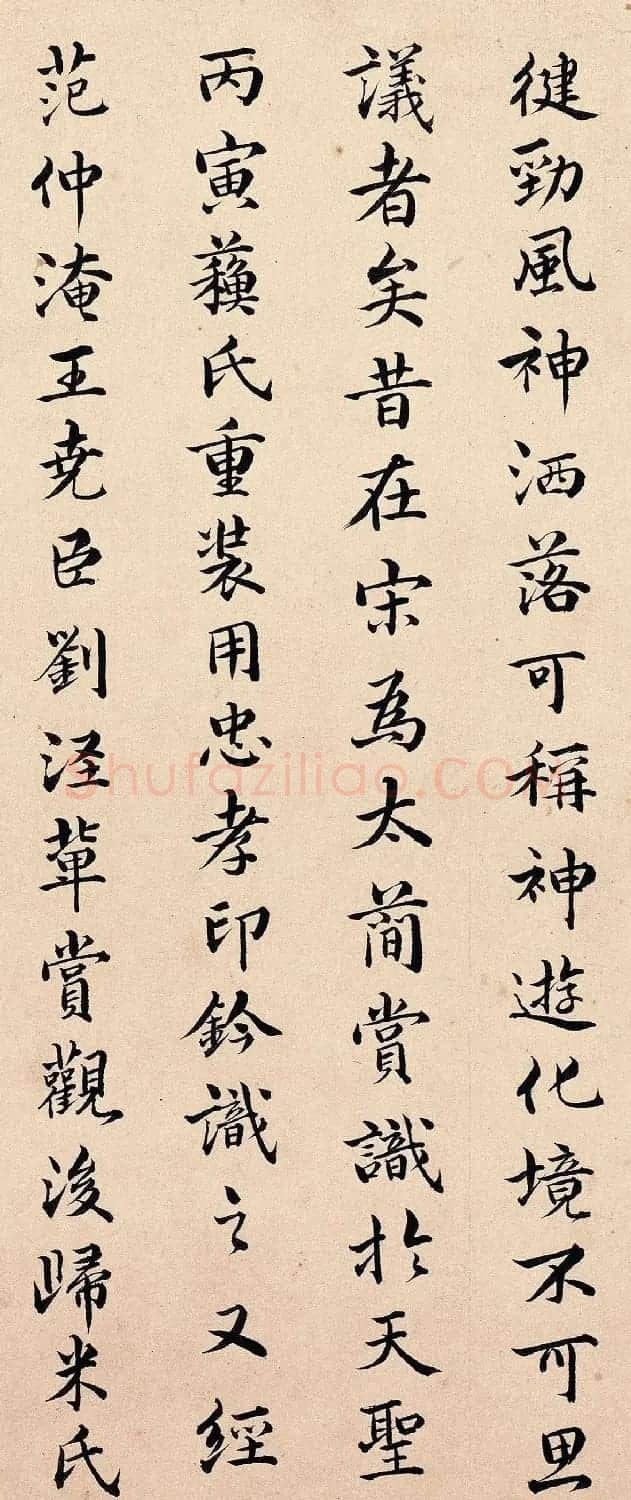 徤勁風神洒落可稱神遊化境不可思
議者矣昔在宋為太蕳賞識於天聖
丙寅蘓氏重裝用忠孝印鈐識之又經
范仲淹王尭臣劉涇軰賞觀後歸米氏
Shufaziliao.COM